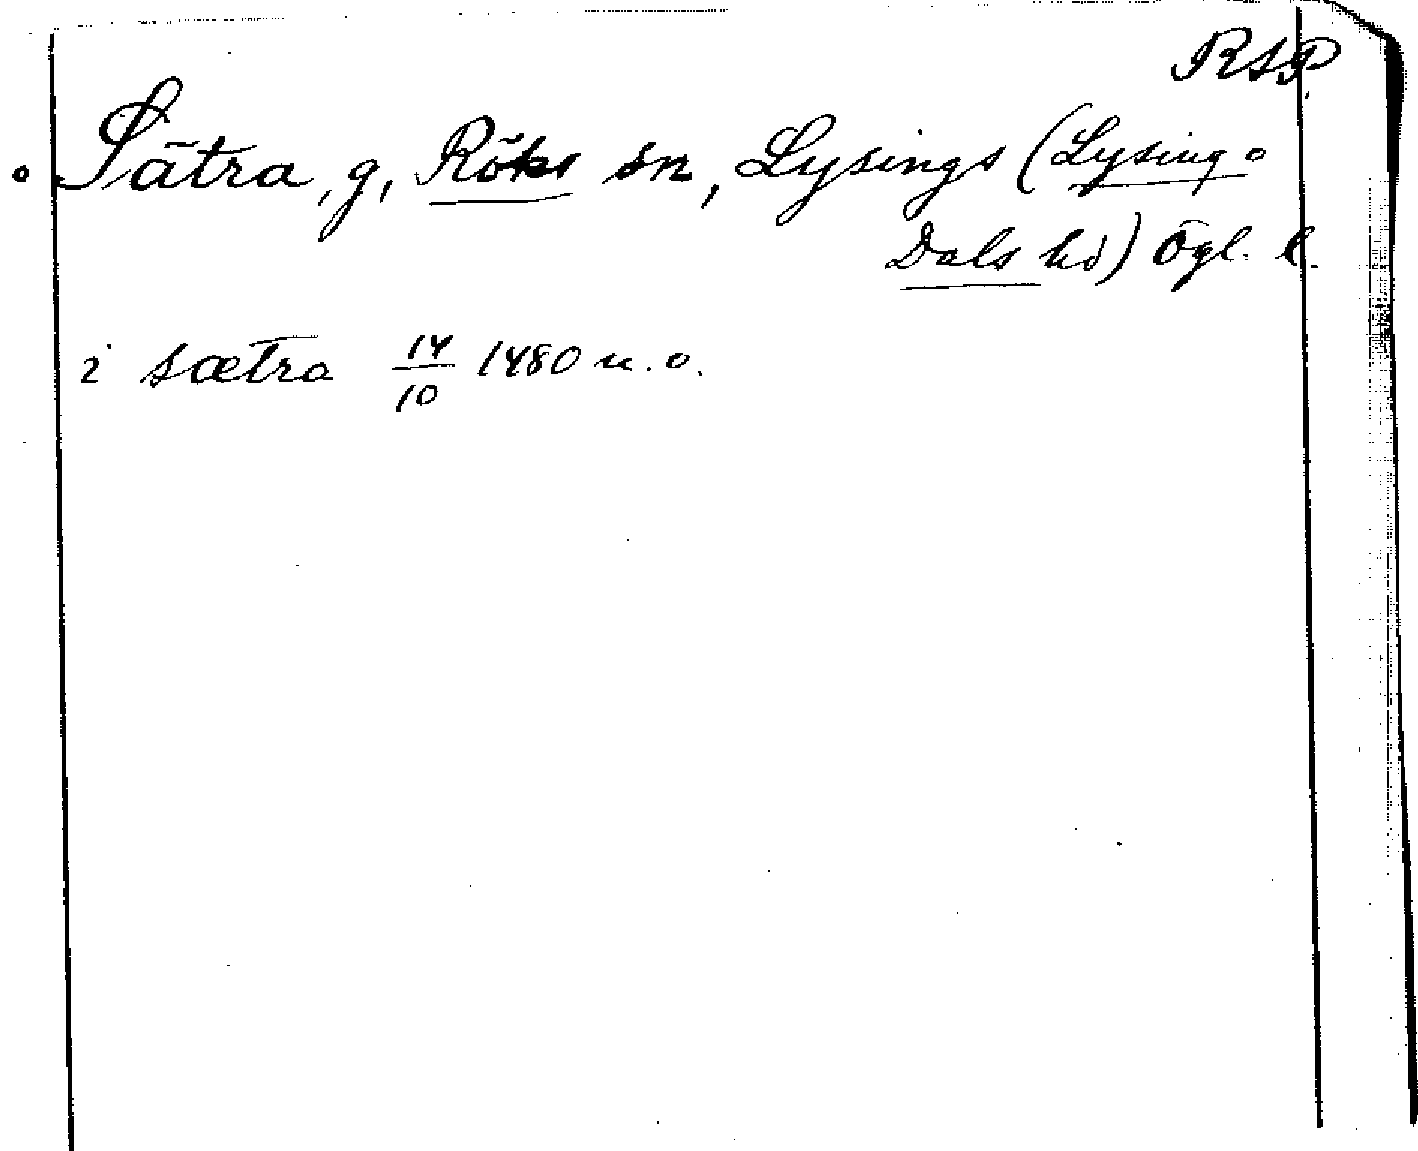 RSP.
° Sätra, g, Röks sn, Lysings (Lysing o
Dals hd) Ögl. l.
i sætra 14/10 1480 u. o.